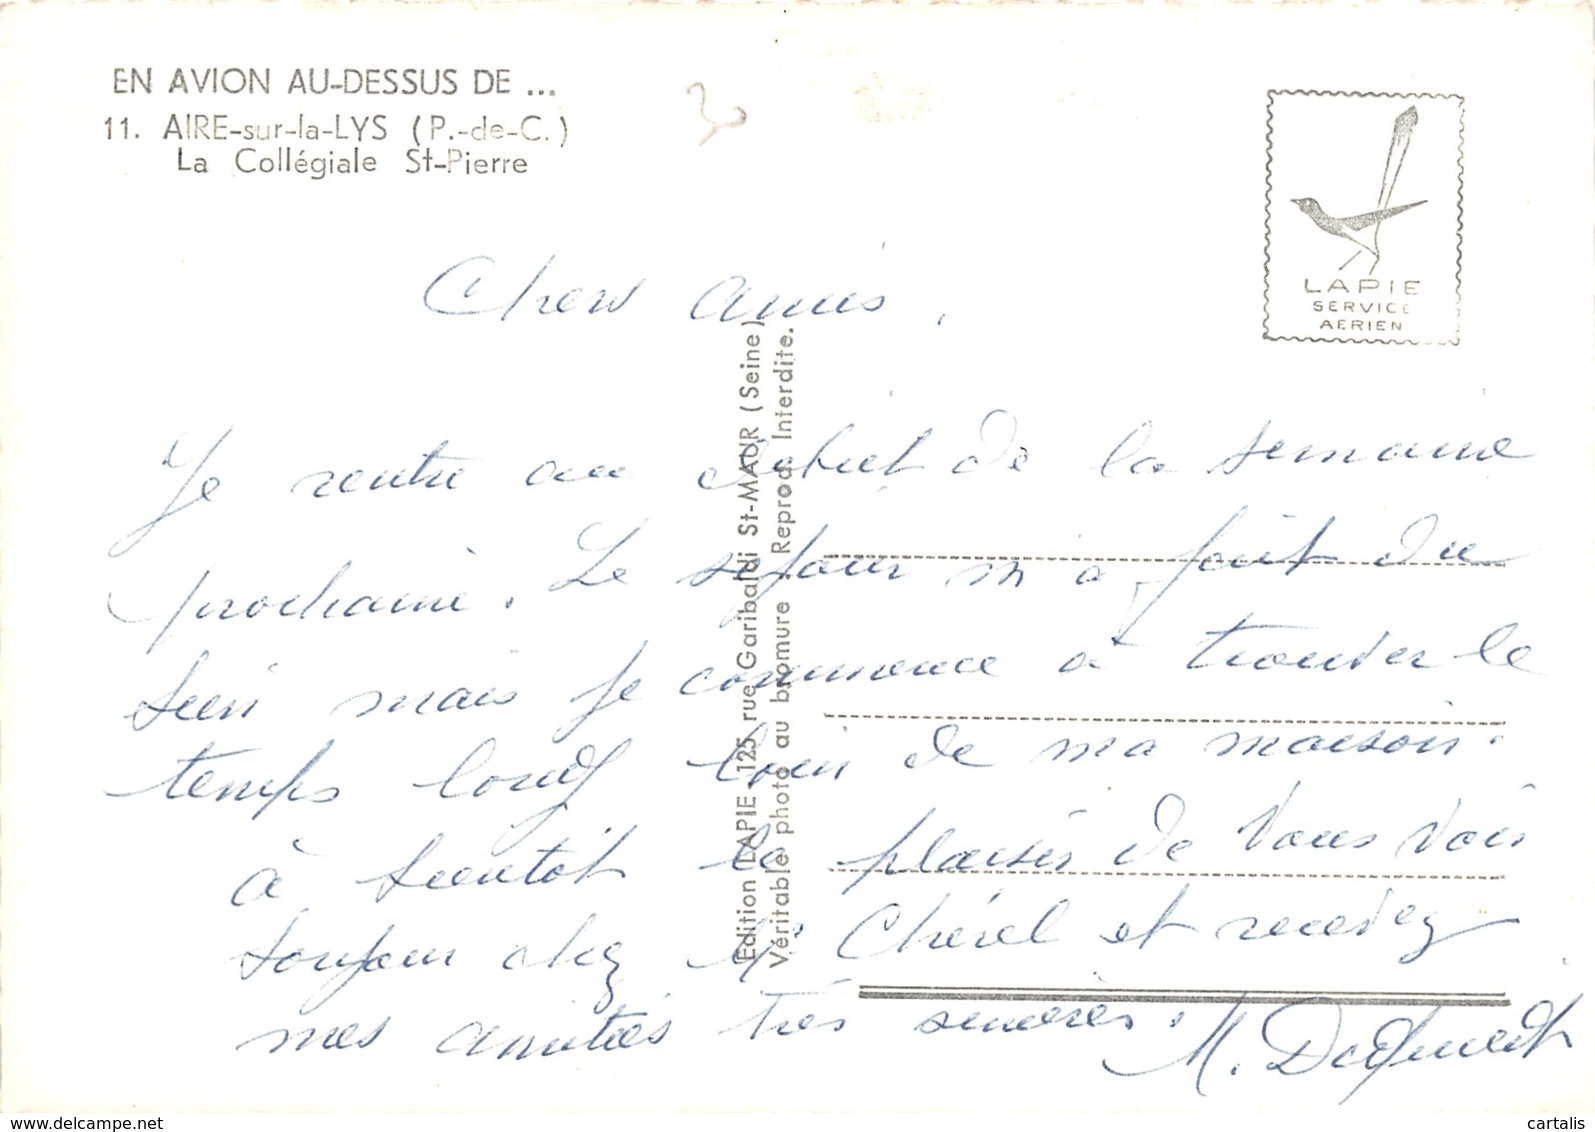 EN AVION AU-DESSUS DE ...
11. AIRE-sur-la-LYS (P.-de-C.)
La Collégiale St-Pierre
LAPIE
SERVICE
AERIEN
Chers amis,
Je rentre au début de la semaine
prochaine. Le séjour m'a fait du
bien mais je commence à trouver le
temps long loin de ma maison.
à bientôt le plaisir de vous voir
toujours chez Mr Chérel et recevez
mes amitiés très sincères.
M.
Edition LAPIE 125 rue Garibaldi St-MAUR (Seine)
Véritable photo au bromure - Reprod. Interdite.
www.delcampe.net
cartalis